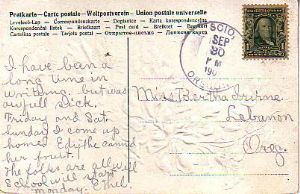 Postkarte — Carte postale — Weltpostverein — Union postale universelle
Levelező-Lap — Correspondenzkarte — Dopisnice — Karta korespondencyjna
Korespondenční lístek — Briefkaart — Post card — Brefkort — Brevkort
Cartolina postale — Tarjeta postal —
SCIO,
SEP
30
PM
190
OREG.
I have been a
long time in
writing, but was
awfull sick.
Friday and Sat
Sunday I come up
home. Edith carried
her
The folks are all well
School will start
monday. Ethel
Miss Bertha Irvine
Lebanon
Oreg.